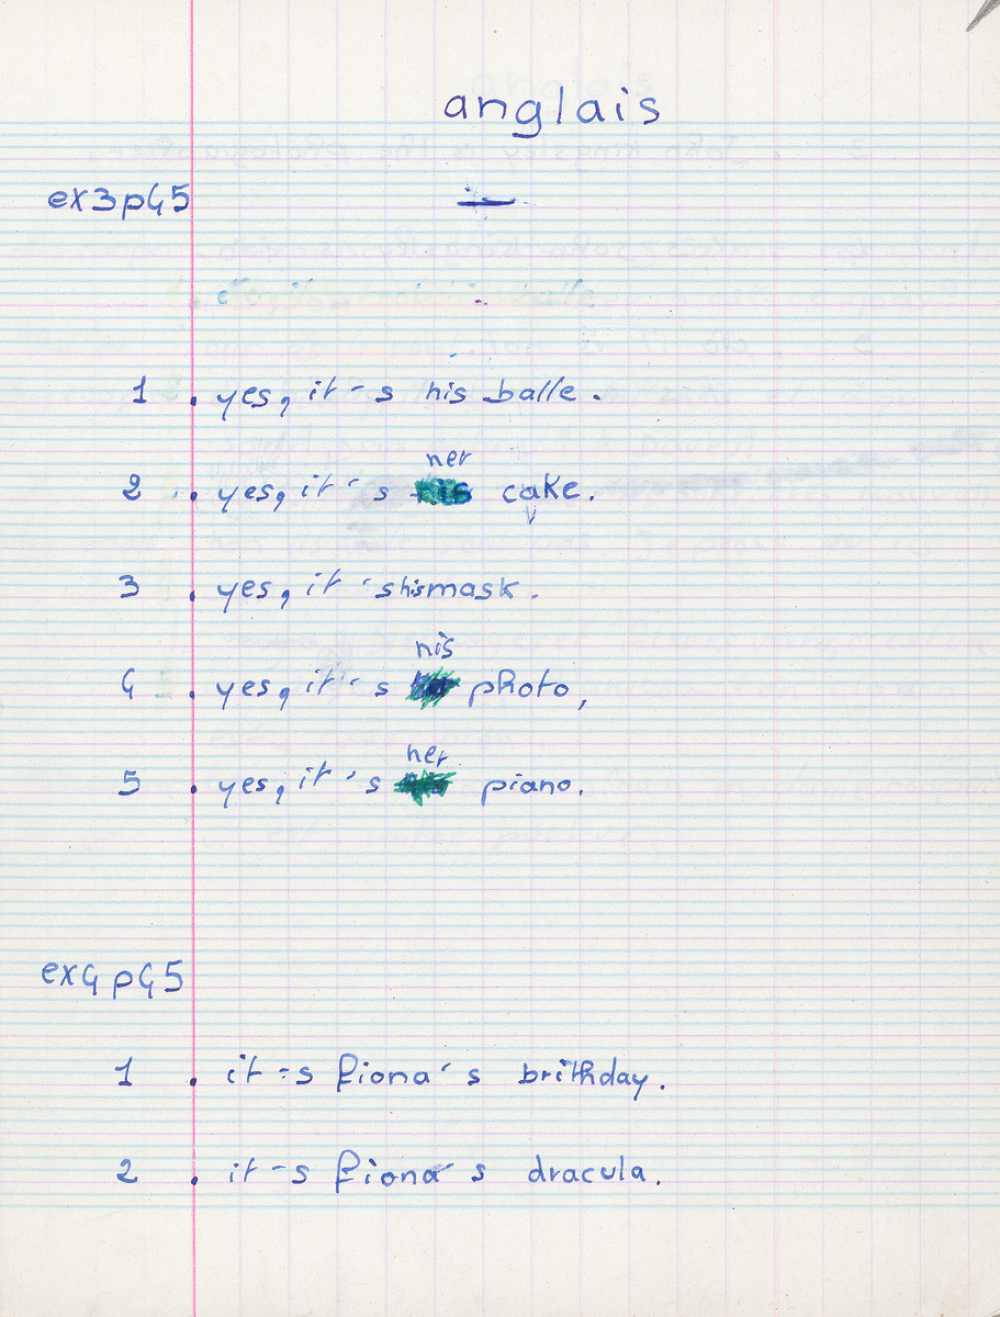 anglais
ex3p45
1 . yes, it's his balle.
her
2 . yes, it's cake.
3 . yes, it's his mask.
his
4 . yes, it's photo,
her
5 . yes, it's piano.
ex4p45
1 . it's fiona's brithday.
2 . it's fiona's dracula.